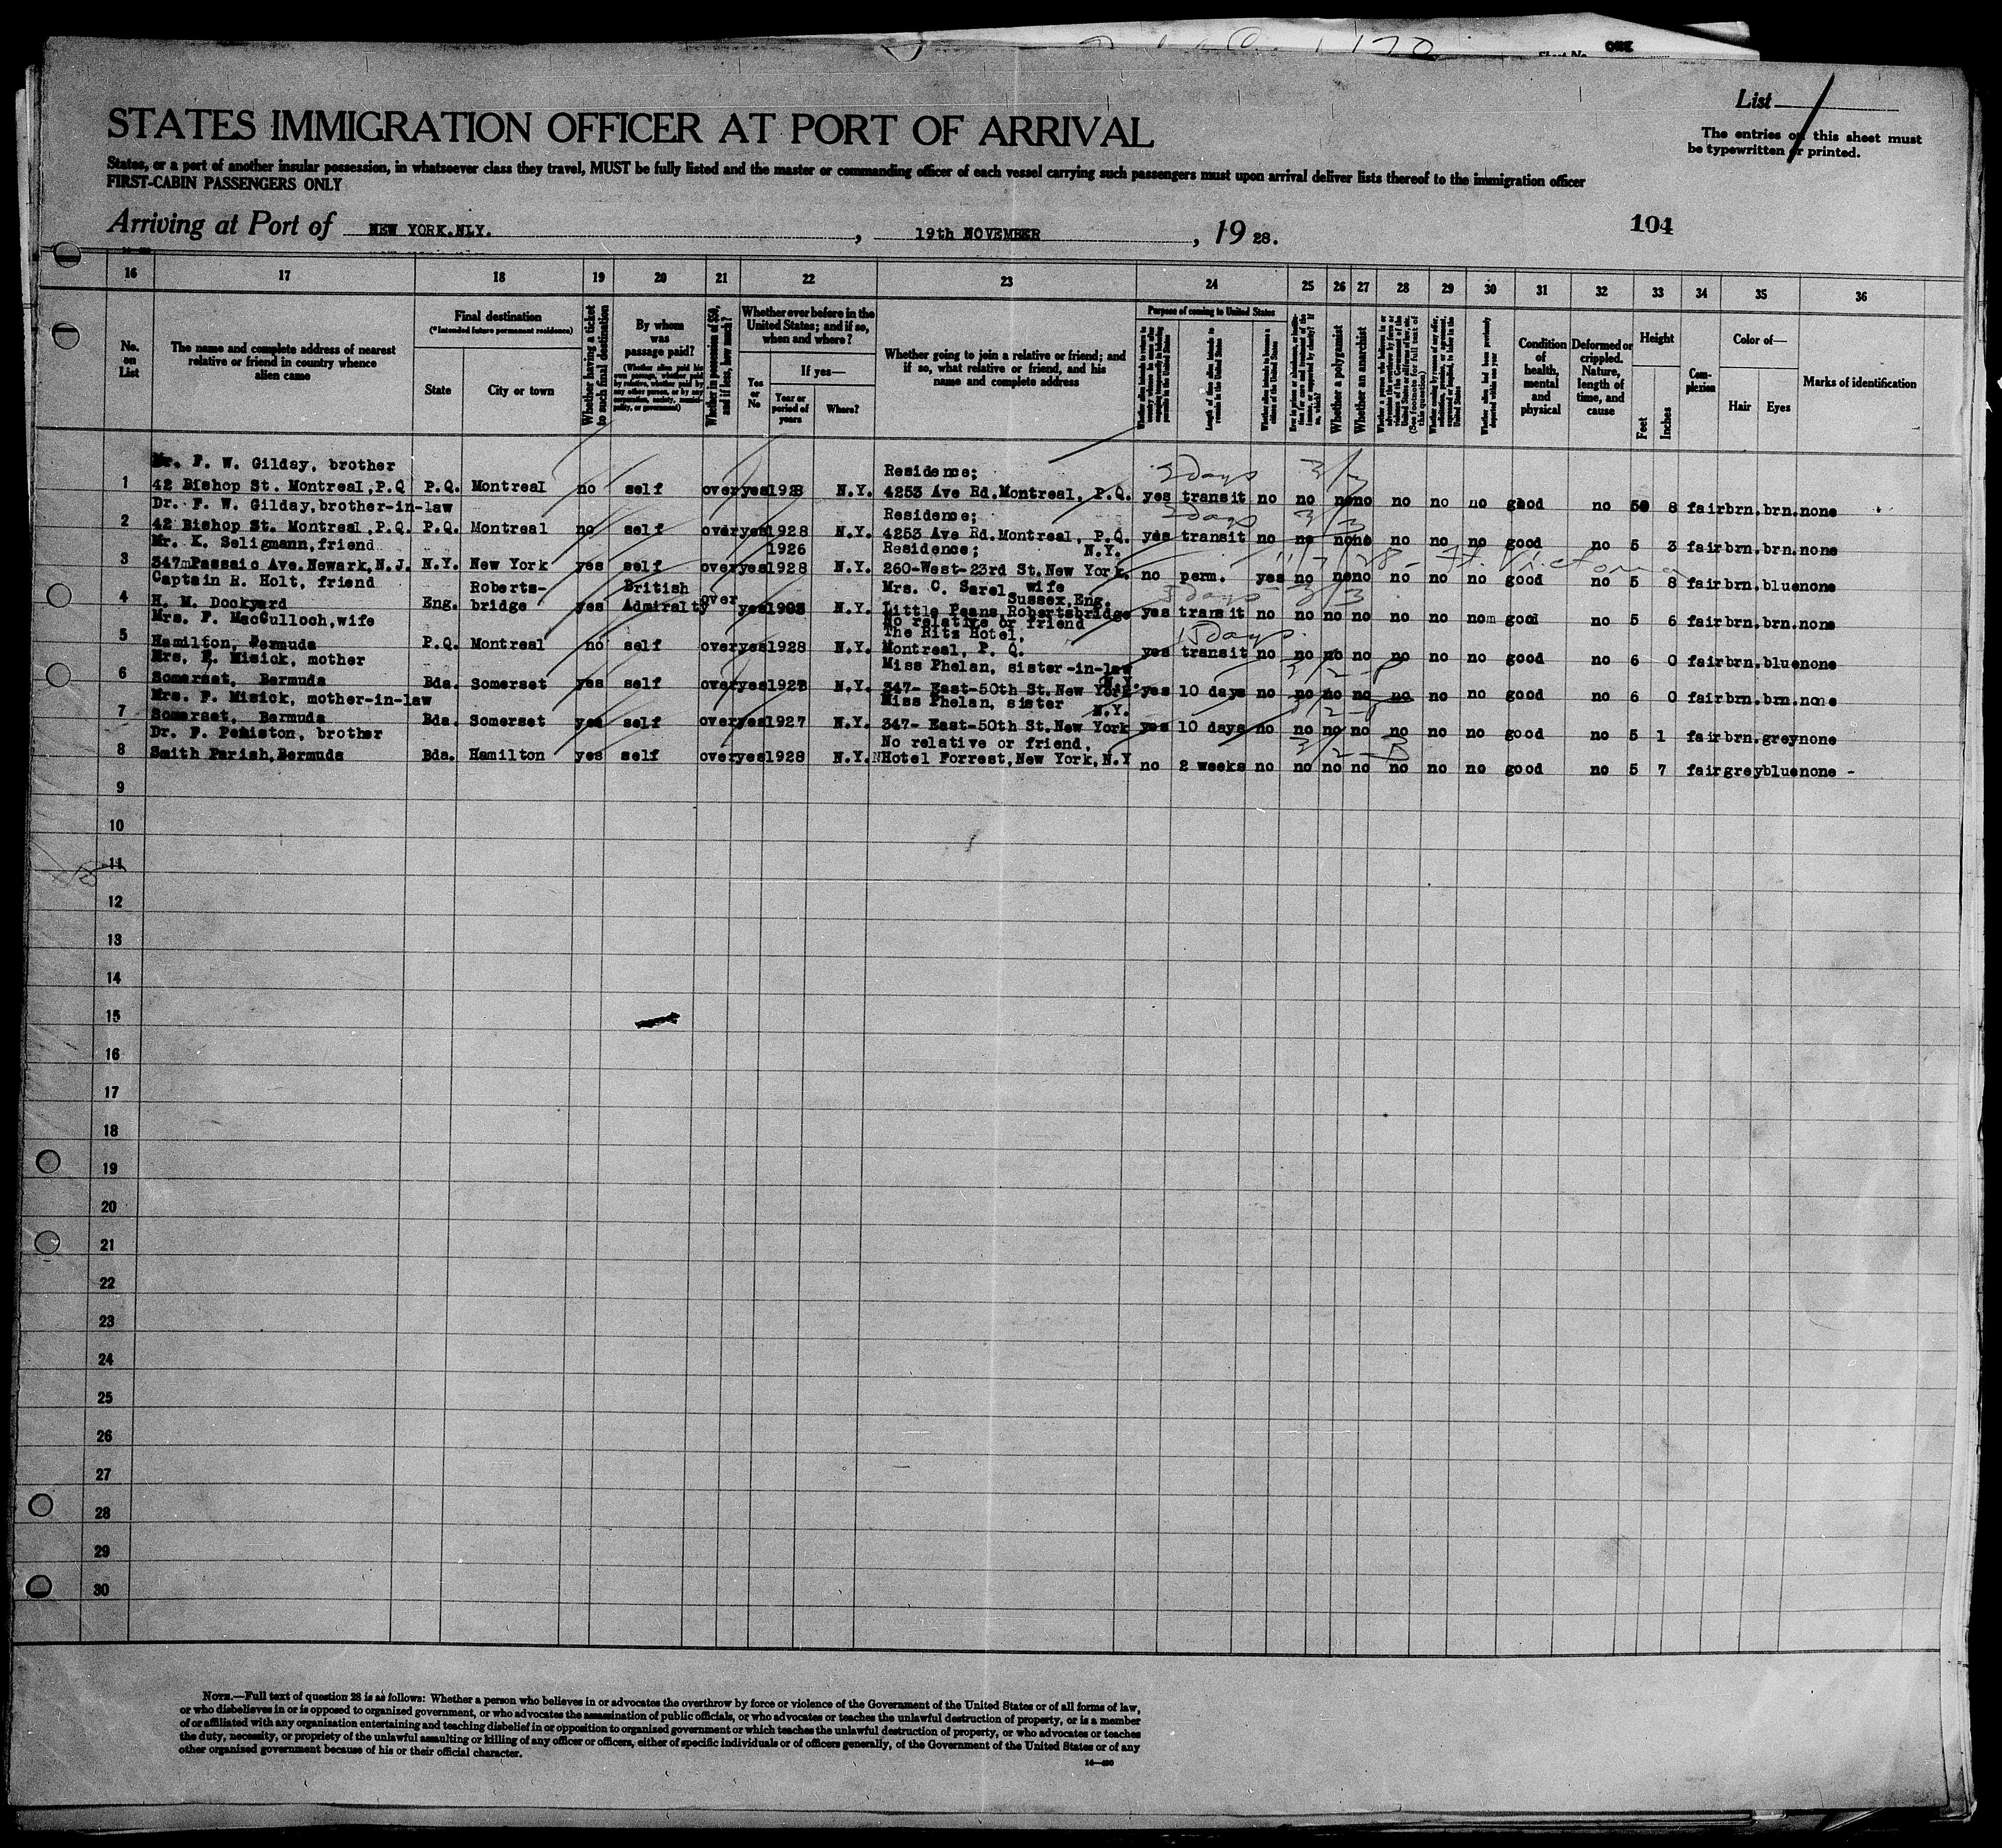 ONE
List
The entries on this sheet must
be typewritten or printed.
STATES IMMIGRATION OFFICER AT PORT OF ARRIVAL
States, or a port of another insular possession, in whatsoever class they travel, MUST be fully listed and the master or commanding officer of each vessel carrying such passengers must upon arrival deliver lists thereof to the immigration officer
FIRST-CABIN PASSENGERS ONLY
Arriving at Port of NEW YORK.NLY. , 19th NOVEMBER , 19 28.
104
16 17 18 19 20 21 22 23 24 25 26 27 28 29 30 31 32 33 34 35 36
No. on List
The name and complete address of nearest relative or friend in country whence alien came
Final destination
(*Intended future permanent residence)
State
City or town
Whether having a ticket to such final destination
By whom was passage paid?
Whether in possession of $50, and if less, how much?
Whether ever before in the United States; and if so, when and where?
Yes or No
If yes—
Year or period of years
Where?
Whether going to join a relative or friend; and if so, what relative or friend, and his name and complete address
Purpose of coming to United States
Length of time alien intends to remain in the United States
Whether a polygamist
Whether an anarchist
Condition of health, mental and physical
Deformed or crippled. Nature, length of time, and cause
Height
Feet
Inches
Complexion
Color of—
Hair
Eyes
Marks of identification
Mr. F. W. Gilday, brother
Residence; 3 days
1 42 Bishop St. Montreal,P.Q P.Q. Montreal no self over yes 1928 N.Y. 4253 Ave Rd.Montreal, P.Q. yes transit no no no no no no no good no 5 8 fair brn. brn. none
Dr. F. W. Gilday,brother-in-law
Residence; 3 days 3/3
2 42 Bishop St. Montreal,P.Q. P.Q. Montreal no self over yes 1928 N.Y. 4253 Ave Rd.Montreal, P.Q. yes transit no no no no no no no good no 5 3 fair brn. brn. none
Mr. K. Seligmann,friend 1926 Residence; N.Y. 11/7/28 - Ft. Victoria
3 347mPassaic Ave.Newark,N.J. N.Y. New York yes self over yes 1928 N.Y. 260-West-23rd St.New York. no perm. yes no no no no no no good no 5 8 fair brn. blue none
Captain R. Holt, friend Roberts- British Mrs. C. Sarel wife
Sussex.Eng. 3 days 3/3
4 H. M. Dockyard Eng. bridge yes Admiralty over yes 1905 N.Y. Little Peans Robertsbridge yes transit no no no no no no nom good no 5 6 fair brn. brn. none
Mrs. F. MacCulloch,wife No relative or friend
The Ritz Hotel, 15 days.
5 Hamilton, Bermuda P.Q. Montreal no self over yes 1928 N.Y. Montreal, P. Q. yes transit no no no no no no no good no 6 0 fair brn. blue none
Mrs. E. Misick, mother Miss Phelan, sister-in-law
N.Y. 3/2-B
6 Somerset, Bermuda Bda. Somerset yes self over yes 1927 N.Y. 347- East-50th St.New York yes 10 days no no no no no no no good no 6 0 fair brn. brn. none
Mrs. F. Misick, mother-in-law Miss Phelan, sister
N.Y. 3/2-B
7 Somerset, Bermuda Bda. Somerset yes self over yes 1927 N.Y. 347- East-50th St.New York yes 10 days no no no no no no no good no 5 1 fair brn. grey none
Dr. F. Peniston, brother No relative or friend, 3/2-B
8 Smith Parish,Bermuda Bda. Hamilton yes self over yes 1928 N.Y. Hotel Forrest,New York,N.Y no 2 weeks no no no no no no no good no 5 7 fair grey blue none -
9
10
11
12
13
14
15
16
17
18
19
20
21
22
23
24
25
26
27
28
29
30
NOTE.—Full text of question 28 is as follows: Whether a person who believes in or advocates the overthrow by force or violence of the Government of the United States or of all forms of law,
or who disbelieves in or is opposed to organized government, or who advocates the assassination of public officials, or who advocates or teaches the unlawful destruction of property, or is a member
of or affiliated with any organization entertaining and teaching disbelief in or opposition to organized government or which teaches the unlawful destruction of property, or who advocates or teaches
the duty, necessity, or propriety of the unlawful assaulting or killing of any officer or officers, either of specific individuals or of officers generally, of the Government of the United States or of any
other organized government because of his or their official character.